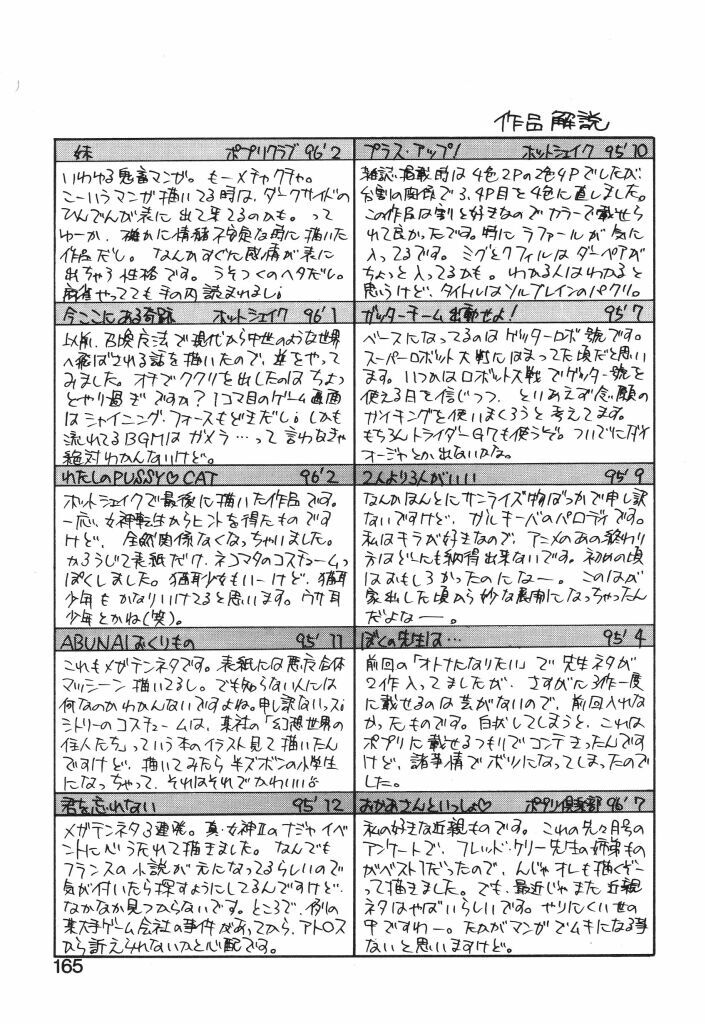 作品解説
妹 ポプリクラブ 96'2
いわゆる鬼畜マンガ。もーメチャクチャ。
こーいうマンガ描いてる時は、ダークサイドの
ひんでんが表に出て来てるのかも。って
ゆーか、確かに情緒不安定な時に描いた
作品だし。なんかすぐに感情が表に
出ちゃう性格です。うそつくのヘタだし。
麻雀やってても手の内読まれまし
今ここにある奇跡 ホットシェイク 96'1
以前、召喚方法で現代から中世のような世界
へ飛ばされる話を描いたので、逆をやって
みました。オチでククリを出したのはちょっ
とやり過ぎですか?1コマ目のゲーム画面
はシャイニング・フォースもどきだし。しかも
流れてるBGMはガメラ…って言わなきゃ
絶対わかんないけど。
わたしのPUSSY♡CAT 96'2
ホットシェイクで最後に描いた作品です。
一応、女神転生からヒントを得たものです
けど、全然関係なくなっちゃいました。
かろうじて表紙だけ、ネコマタのコスチュームっ
ぽくしました。猫耳少女もいーけど、猫耳
少年もかなりいけてると思います。ウサ耳少
年とかね(笑)。
ABUNAIおくりもの 95'11
これもメガテンネタです。表紙には悪魔合体
マッシーン描いてるし。でも知らない人には
何なのかわかんないですよね。申し訳ないっス。
シトリーのコスチュームは、某社の「幻想世界の
住人たち」っていう本のイラスト見て描いたん
ですけど、描いてみたら半ズボンの小学生
になっちゃって、それはそれでかわいい
君を忘れない 95'12
メガテンネタ3連発。真・女神Ⅱのナジャイベ
ントに心うたれて描きました。なんでも
フランスの小説が元になってるらしいので
気が付いたら探すようにしてるんですけど、
なかなか見つからないです。ところで、例の
某大手ゲーム会社の事件があってから、アトロス
から訴えられないかと心配です。
プラス・アップ! ホットシェイク 95'10
雑誌掲載時は4色2Pの2色4Pでしたが、
台割の関係で3、4P目を4色に直しました。
この作品は割と好きなのでカラーで載せら
れて良かったです。特にラファールが気に
入ってるです。ミグとクフィルはダーペアが
ちょっと入ってるかも。わかる人はわかると
思うけど、タイトルはソルブレインのパクリ。
ガッターチーム出動せよ! 95'7
ベースになってるのはゲッターロボ號です。
スーパーロボット大戦にはまってた頃だと思い
ます。いつかはロボット大戦でゲッター號を
使える日を信じつつ、とりあえず念願の
ガイキングを使いまくろうと考えてます。
もちろんトライダーG7も使うぞ。ついでにダイ
オージャとか出ないかな。
2人より3人がいい 95'9
なんかほんとにサンライズ物ばっかで申し訳
ないですけど、ガルキーバのパロディです。
私はキラが好きなので、アニメのあの終わり
方はどーにも納得出来ないです。初めの頃
はおもしろかったのになー。このはが
家出した頃から妙な展開になっちゃったん
だよなー。
ぼくの先生は… 95'4
前回の「オトナになりたい」で先生ネタが
2作入ってましたが、さすがに3作一度
に載せるのは芸がないので、前回入れな
かったものです。白状してしまうと、これは
ポプリに載せるつもりでコンテきったんです
けど、諸事情でボツになってしまったので
した。
おかあさんといっしょ♡ ポプリ倶楽部 96'7
私の好きな近親ものです。これの先々月号の
アンケートで、フレッド・ケリー先生の姉弟もの
がベスト1だったので、んじゃオレも描くぞー
って描きました。でも、最近じゃまた近親
ネタはやばいらしいです。やりにくい世の
中ですわー。たかがマンガでムキになる事
ないと思いますけど。
165